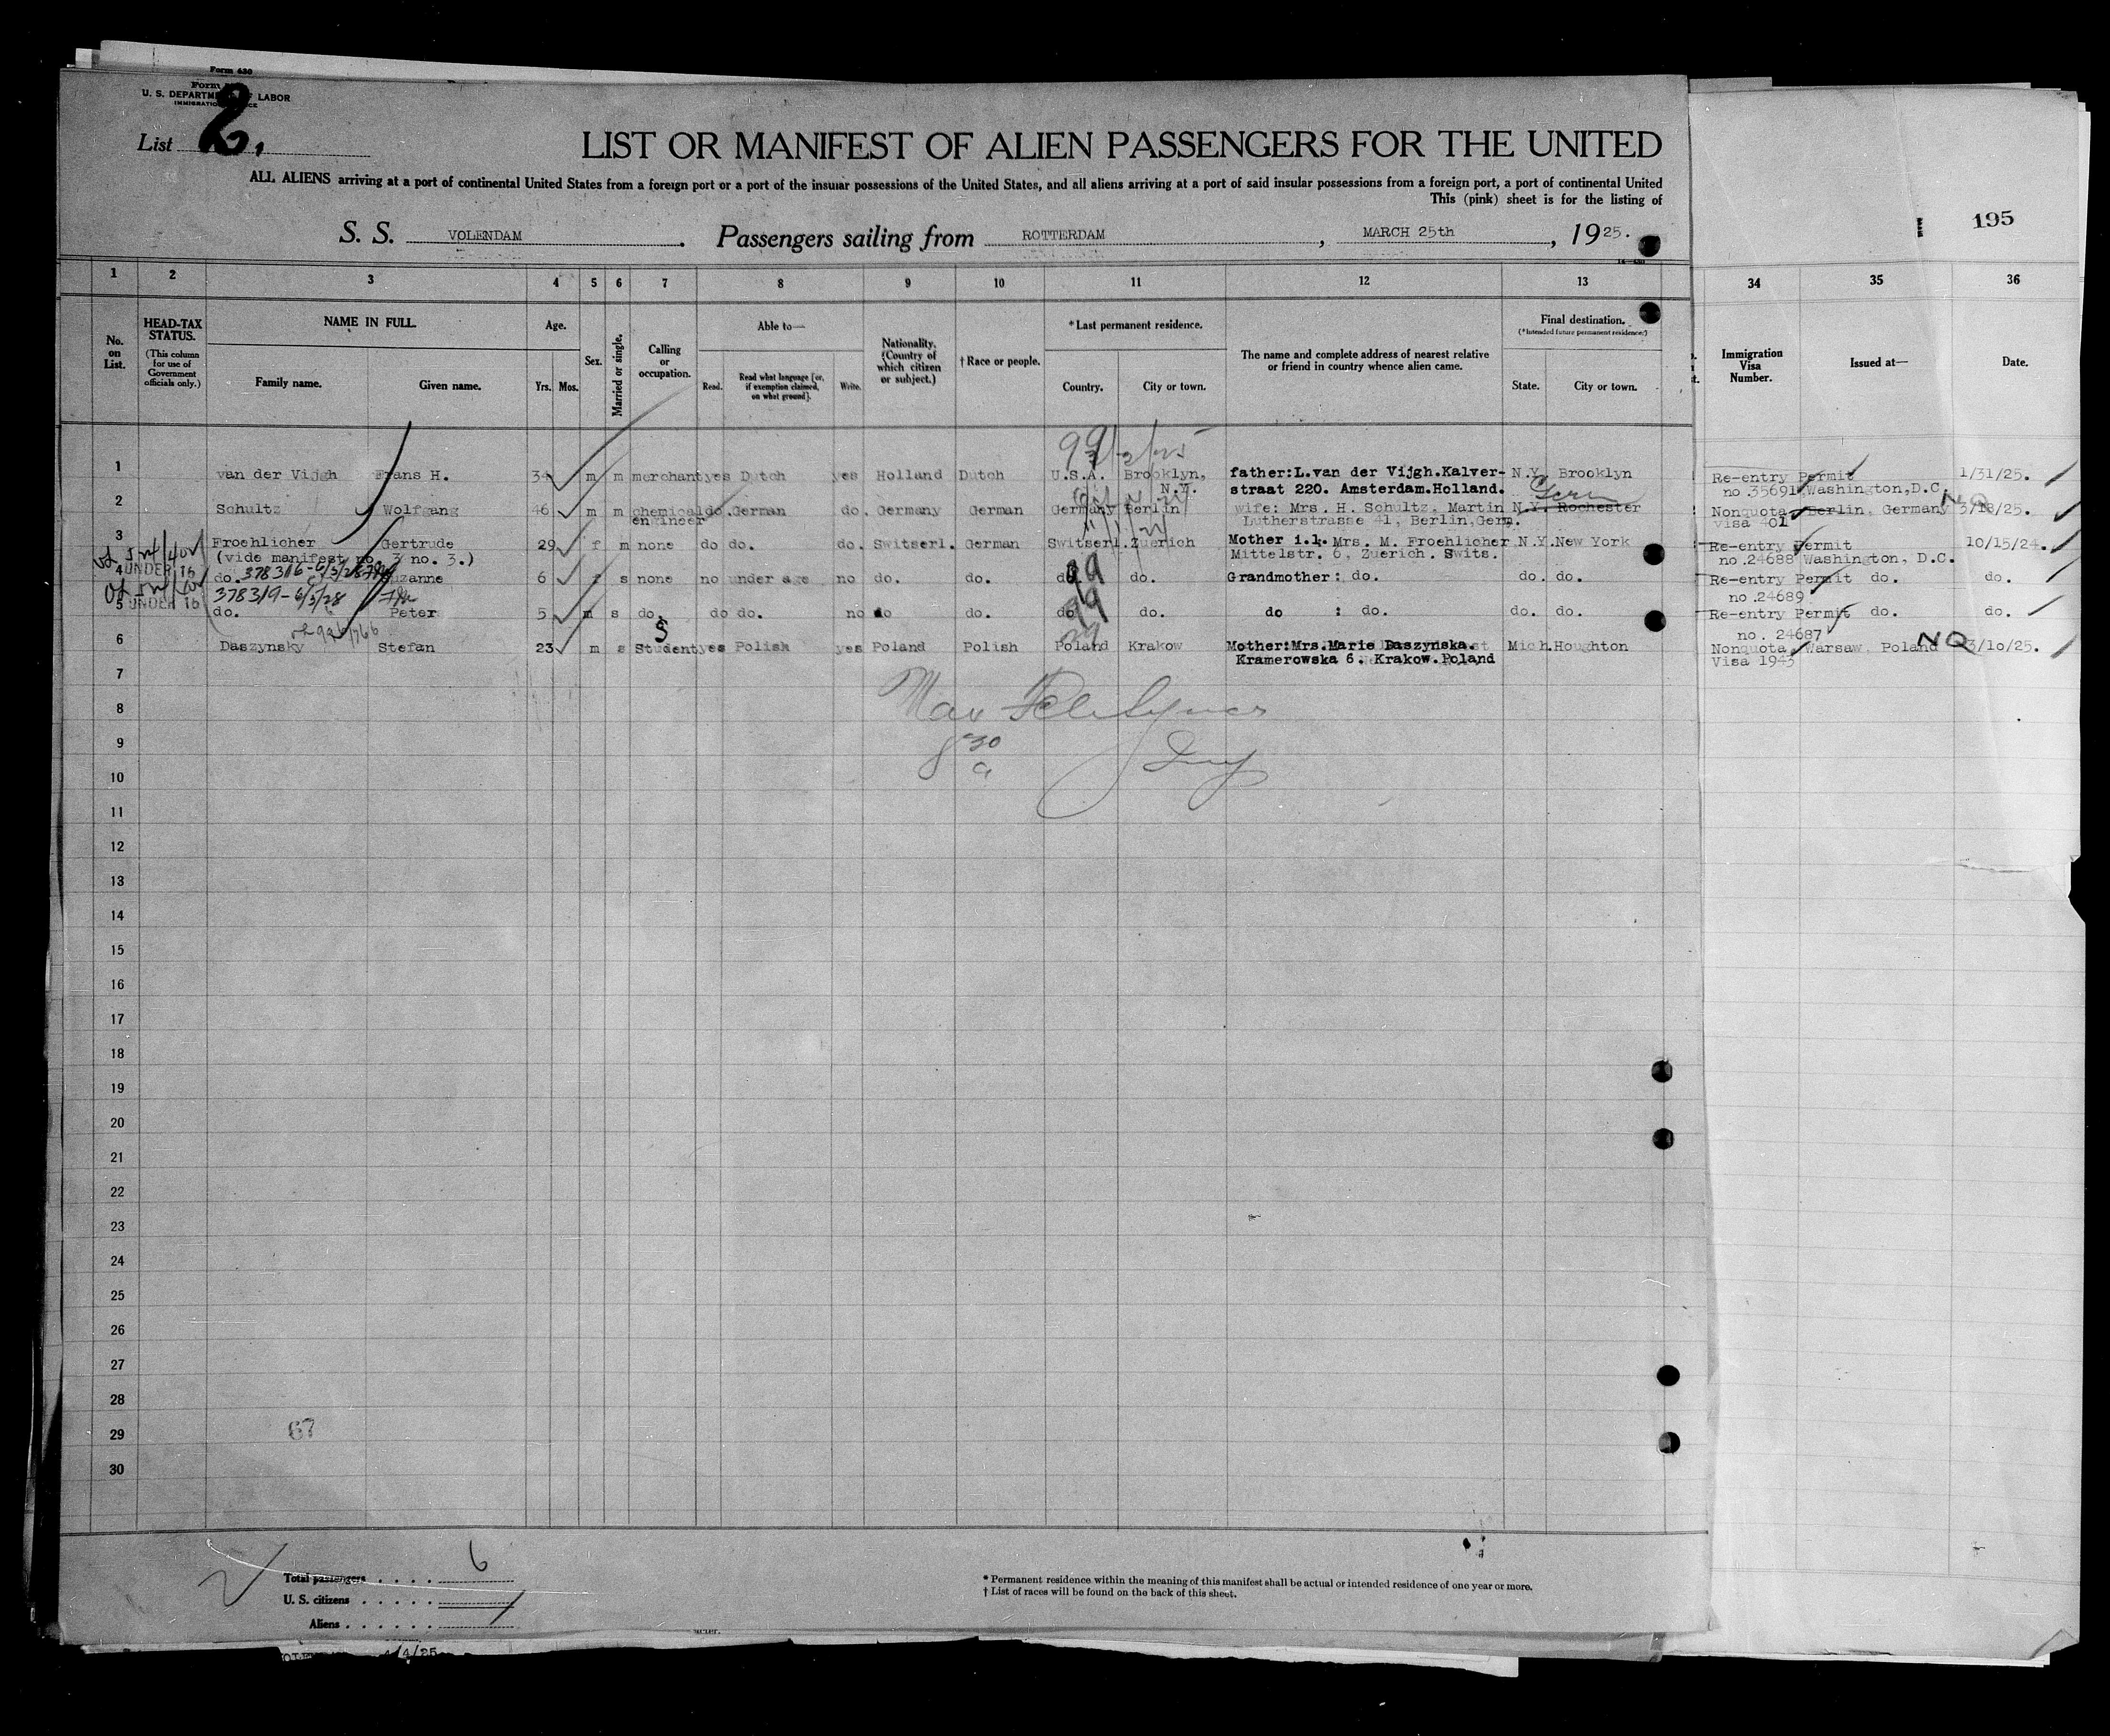 Form 630
Form
U. S. DEPARTMENT OF LABOR
IMMIGRATION SERVICE
List 2.
LIST OR MANIFEST OF ALIEN PASSENGERS FOR THE UNITED
ALL ALIENS arriving at a port of continental United States from a foreign port or a port of the insular possessions of the United States, and all aliens arriving at a port of said insular possessions from a foreign port, a port of continental United
This (pink) sheet is for the listing of
195
S. S. VOLENDAM. Passengers sailing from ROTTERDAM, MARCH 25th, 1925.
1 2 3 4 5 6 7 8 9 10 11 12 13 34 35 36
No. on List.
HEAD-TAX STATUS.
(This column for use of Government officials only.)
NAME IN FULL.
Family name. Given name.
Age.
Yrs. Mos.
Sex.
Married or single.
Calling or occupation.
Able to—
Read. Read what language [or, if exemption claimed, on what ground]. Write.
Nationality. (Country of which citizen or subject.)
† Race or people.
*Last permanent residence.
Country. City or town.
The name and complete address of nearest relative or friend in country whence alien came.
Final destination.
(*Intended future permanent residence.)
State. City or town.
Immigration Visa Number.
Issued at—
Date.
1 van der Vijgh Frans H. 34 m m merchant yes Dutch yes Holland Dutch U.S.A. Brooklyn, father:L.van der Vijgh.Kalver- N.Y. Brooklyn Re-entry Permit 1/31/25.
N.Y. straat 220. Amsterdam.Holland. no 35691 Washington,D.C.
2 Schultz Wolfgang 46 m m chemical do. German do. Germany German Germany Berlin wife: Mrs. H. Schultz, Martin N.Y. Rochester Nonquota Berlin, Germany NQ 3/18/25.
engineer Lutherstrasse 41, Berlin,Germ. visa 401
3 Froehlicher Gertrude 29 f m none do do. do. Switserl. German Switserl. Zuerich Mother i.l. Mrs. M. Froehlicher N.Y. New York Re-entry Permit 10/15/24.
(vide manifest no. 3 no. 3.) Mittelstr. 6, Zuerich. Swits. no.24688 Washington, D.C.
4 UNDER 16 do. 378316-6/5/28 Suzanne 6 f s none no under age no do. do. do. do. Grandmother: do. do. do. Re-entry Permit do. do.
378319-6/5/28 no.24689
5 UNDER 16 do. Peter 5 m s do. do do. no do do. do. do. do : do. do. do. Re-entry Permit do. do.
no. 24687
6 Daszynsky Stefan 23 m s S Student yes Polish yes Poland Polish Poland Krakow Mother:Mrs.Marie Daszynska. Mich. Houghton Nonquota Warsaw, Poland NQ 3/10/25.
Kramerowska 6. Krakow.Poland Visa 1943
7
8 Max
9 8 30
10 a
11
12
13
14
15
16
17
18
19
20
21
22
23
24
25
26
27
28
29 67
30
Total passengers . . . . . 6
U. S. citizens . . . . .
Aliens . . . . . .
* Permanent residence within the meaning of this manifest shall be actual or intended residence of one year or more.
† List of races will be found on the back of this sheet.
4/4/25